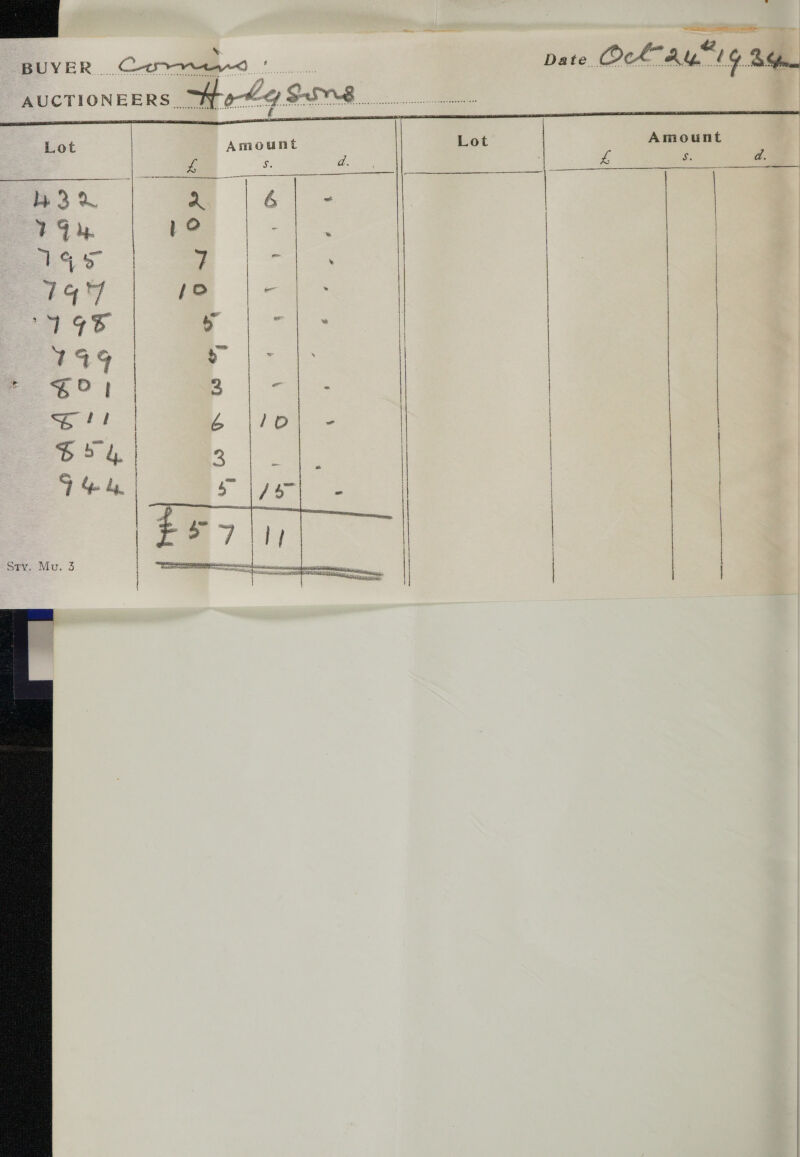 BUYER Comins
Date Oct 24th 1924
AUCTIONEERS Hodgsons
Lot Amount Lot Amount
£ s. d. £ s. d.
432 2 6 -
794 10 - -
795 7 - -
797 10 - -
798 5 - -
799 5 - -
801 3 - -
811 6 10 -
854 3 - -
944 5 15 -
£57 11
STY. MU. 3